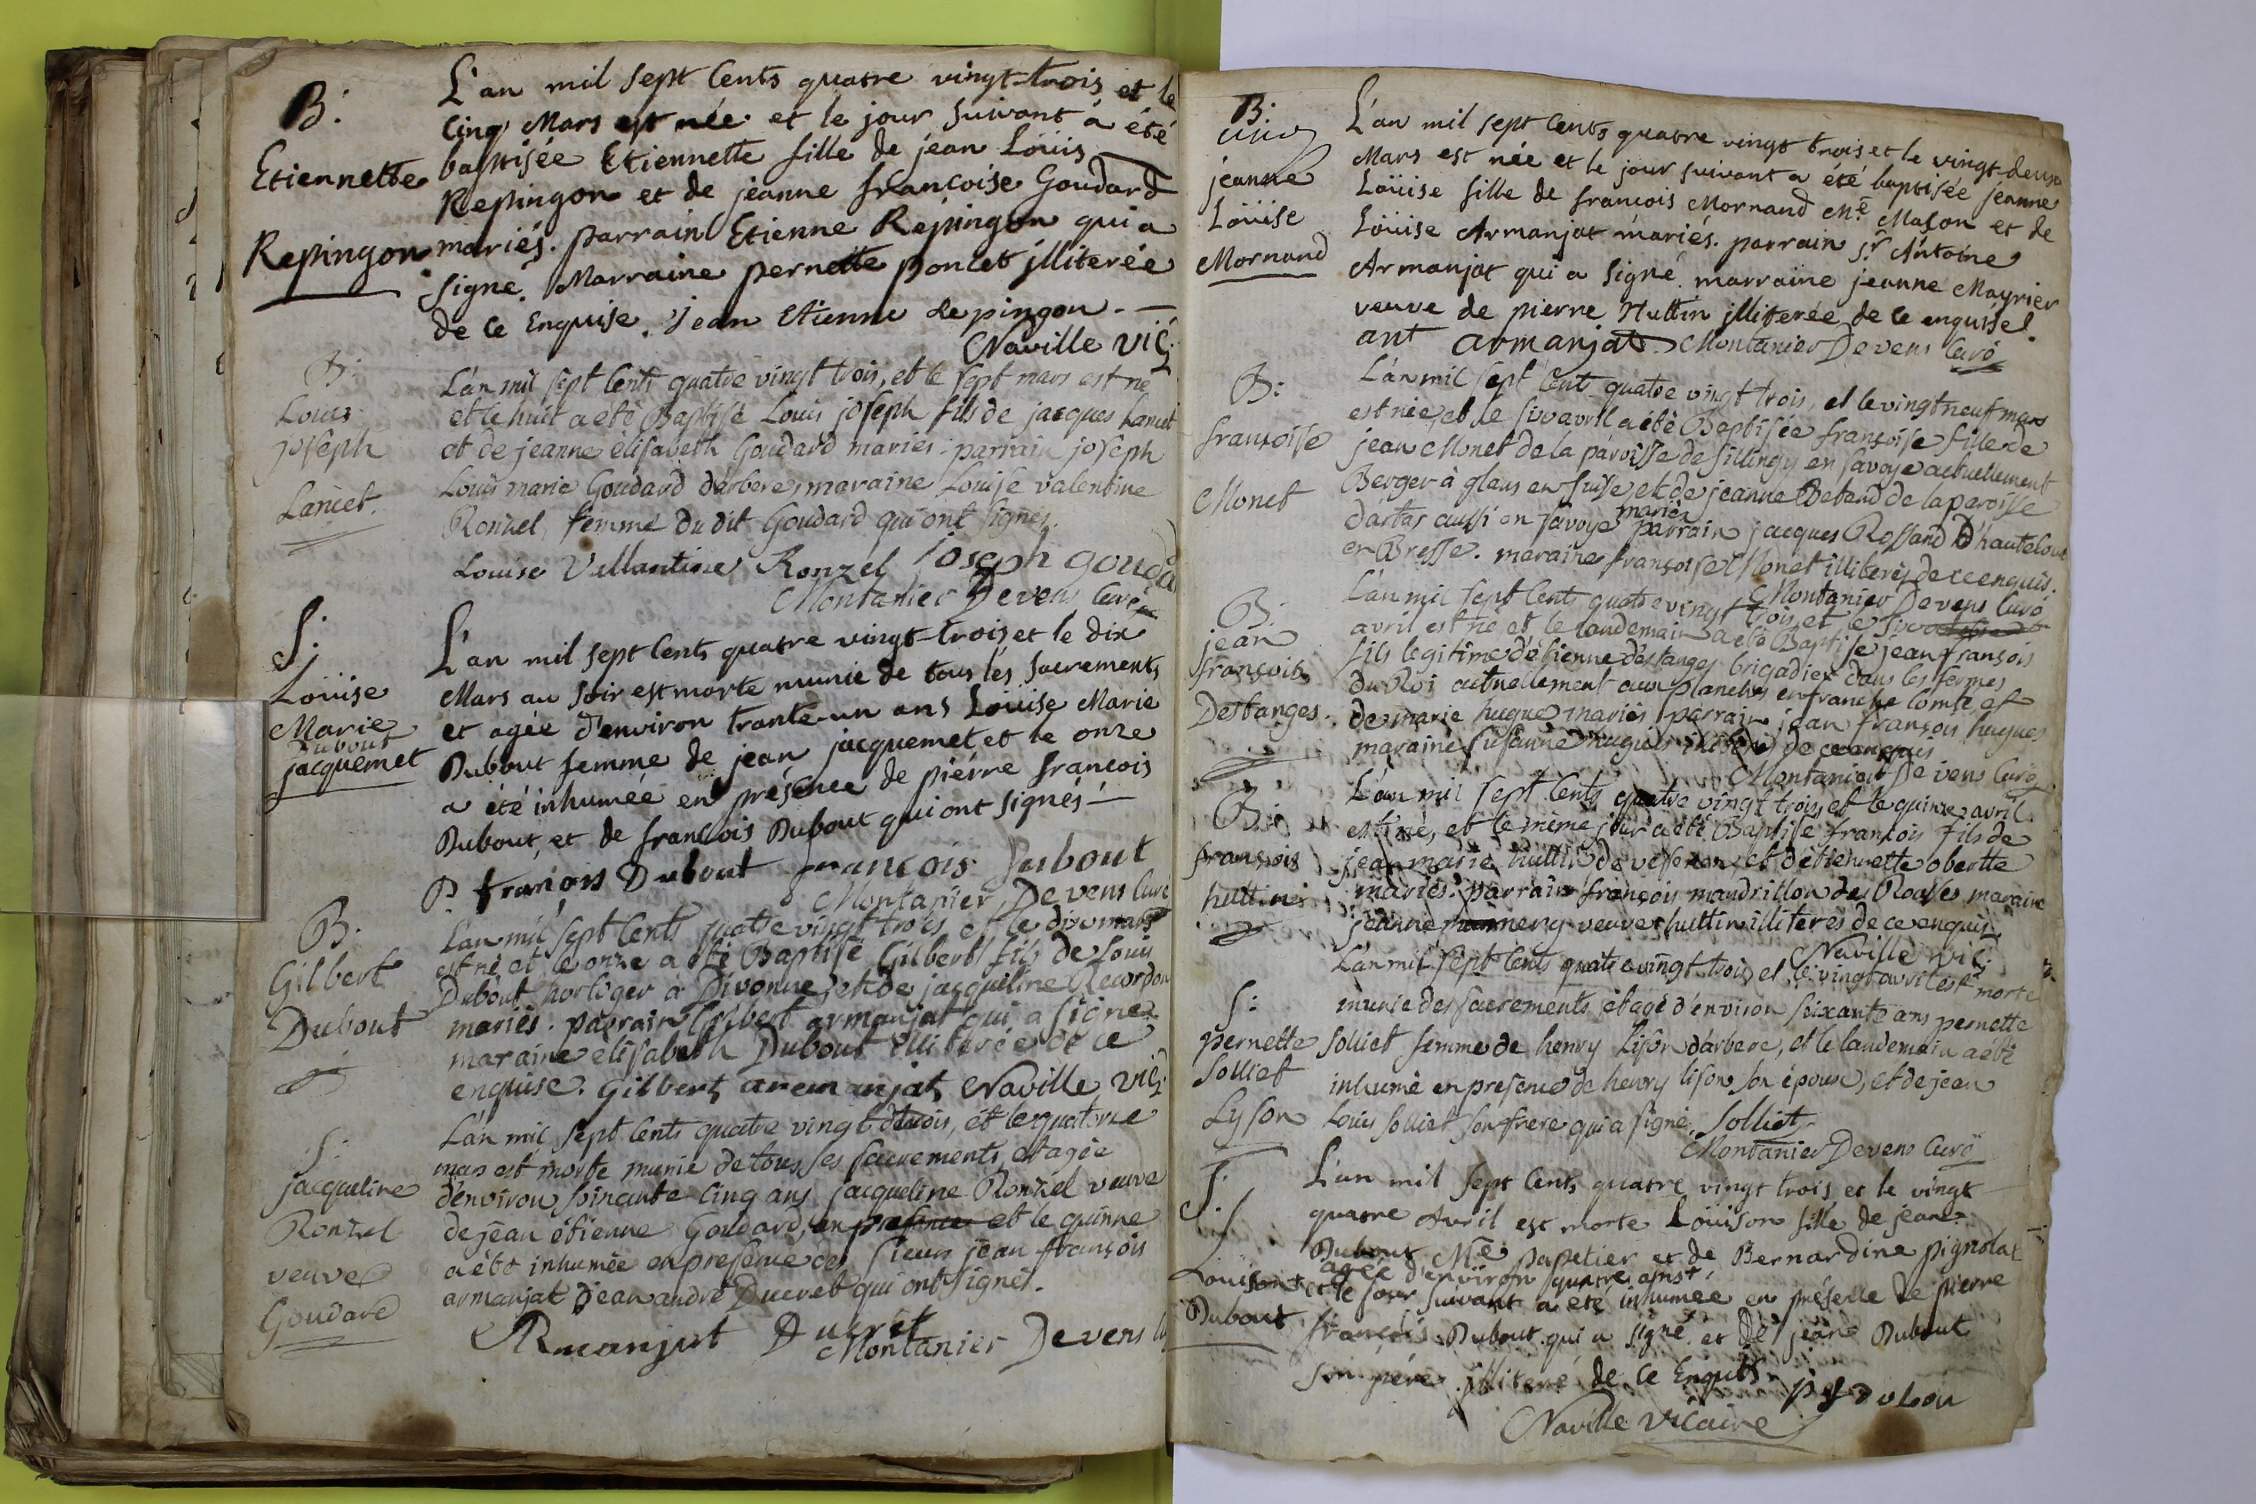 B:
Etiennette
Repingon
L'an mil sept Cents quatre vingt-trois et le
Cinq Mars est née et le jour suivant a été
baptisée Etiennette fille de jéan Loüis
Repingon et de jéanne françoise Goudard
mariés. parrain Etienne Repingon qui a
signé. Marraine pernette poncet jlliterée
de ce Enquise. Jean Etienne Repingon. —
Naville vic.
B:
Louis
joseph
Lancet.
L'an mil sept Cents quatre vingt trois, et le sept mars est né
et le huit a eté Baptisé Louis joseph fils de jacques Lancet
et de jeanne elisabeth Goudard mariés. parrain joseph
Louis marie Goudard d'arbere, maraine Louise valentine
Ronzel femme du dit Goudard qui ont signés.
Louise Vallantine Ronzel joseph Gouda
Montanier Devens Curé
S:
Loüise
Marie
Dubout
jacquemet
L'an mil sept Cents quatre vingt-trois et le dix
Mars au soir est morte munie de tous les sacrements
et agée d'environ trante-un ans Loüise Marie
Dubout femme de jean jacquemet et le onze
a été inhumée en présence de piérre francois
Dubout, et de francois Dubout qui ont signés —
P. françois Dubout francois Dubout
Montanier Devens Curé
B:
Gilbert
Dubout
L'an mil sept Cents quatre vingt trois, et le dix mars
est né et le onze a été Baptisé Gilbert fils de Louis
Dubout horloger à Divonne, et de jacqueline Recordon
mariés. parrain Gilbert armanjat qui a signé
maraine élisabeth Dubout illiterée de ce
enquise. Gilbert aremanjat Naville vic.
S:
jacqueline
Ronzel
veuve
Goudard
L'an mil sept Cents quatre vingt trois, et le quatorze
mars est morte munie de tous ses sacrements et agée
d'environ soixante cinq ans jacqueline Ronzel veuve
de jean étienne Goudard, en presence et le quinze
a été inhumée en presence des sieurs jean françois
armanjat jean andré Ducret qui ont signés.
Rmanjat Ducret
Montanier Devens
B:
jeanne
Loüise
Mornand
L'an mil sept Cents quatre vingt trois et le vingt-deux
Mars est née et le jour suivant a été baptisée jeanne
Loüise fille de francois Mornand Me. Maçon et de
Loüise Armanjat mariés. parrain sr. Antoine
Armanjat qui a signé. marraine jeanne Mayrier
veuve de pierre Huttin illiterée de ce enquise.
ant armanjat Montanier Devens Curé
B:
françoise
Monet
L'an mil sept Cents quatre vingt trois, et le vingt neuf mars
est née, et le six avril a été Baptisée françoise fille de
jean Monet de la paroisse de sillingy en savoye actuellement
Berger à glans en suise, et de jeanne Betend de la paroisse
d'artas aussi en savoye mariés parrain jacques Rossand D'hautecour
en Bresse. maraine françoise Monet illiterés de ce enquis.
Montanier Devens Curé
B:
jean
françois
Destanges.
L'an mil sept Cents quatre vingt trois, et le six
avril est né, et le landemain a été Baptisé jean françois
fils legitime d'étienne destanges brigadier dans les fermes
du Roi actuellement aux planches en franche Comté, et
de marie hugue mariés. parrain jean françois hugues
maraine susanne hugues de ce enquis
Montanier Devens Curé
B:
françois
huttin
L'an mil sept Cents quatre vingt trois, et le quinze avril
est né, et le même jour a été Baptisé françois fils de
jean marie huttin de vesenex, et d'étiennette obertte
mariés. parrain françois mandrillon des Rousses maraine
jeanne veuve huttin illiterés de ce enquis
Naville vic.
S:
pernette
Solliet
Lyson
L'an mil sept Cents quatre vingt trois, et le vingt avril est morte
munie des sacrements et agé d'environ soixante ans pernette
Solliet femme de henry Lison d'arbere, et le landemain a été
inhumé en presence de henry lison son époux, et de jean
Louis Solliet son frere qui a signé. Solliet
Montanier Devens Curé
S:
Louison
Dubout
L'an mil sept Cents quatre vingt trois et le vingt
quatre Avril est morte Loüison fille de jean
Dubout Me. papetier et de Bernardine pignolat
agée d'environ quatre ans
et le jour suivant a été inhumée en présence de pierre
françois Dubout qui a signé et de jean Dubout
son pére jlliteré de ce Enquis.
Naville vicaire